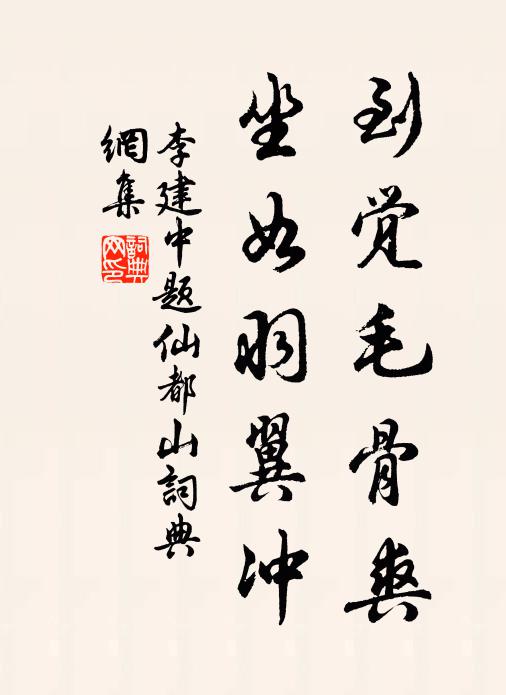 到觉毛骨爽
坐如羽翼冲
李建中题仙都山詞典
網集
詞典
网印